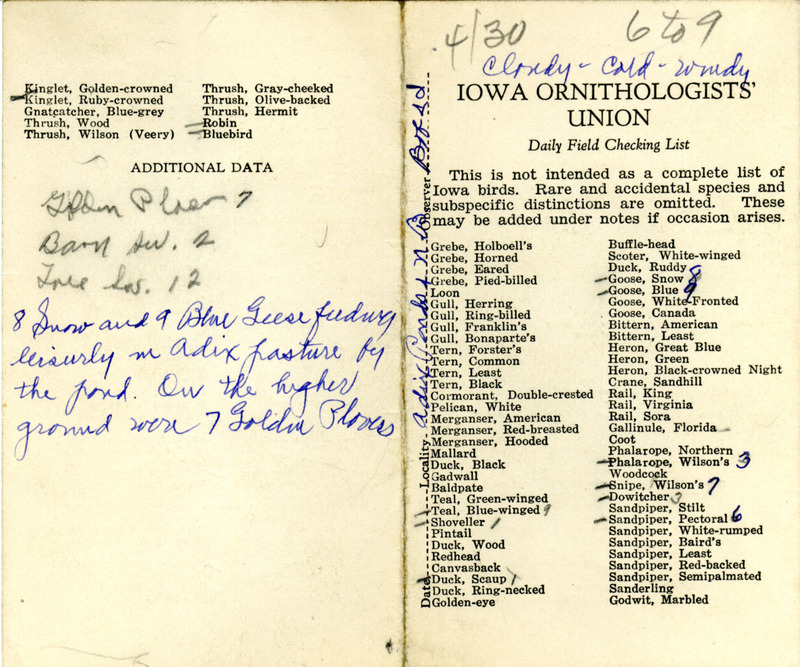 Kinglet, Golden-crowned
Kinglet, Ruby-crowned
Gnatcatcher, Blue-grey
Thrush, Wood
Thrush, Wilson (Veery)
Thrush, Gray-cheeked
Thrush, Olive-backed
Thrush, Hermit
Robin
Bluebird
ADDITIONAL DATA
Golden Plover 7
Barn Sw. 2
Tree Sw. 12
8 Snow and 9 Blue Geese feeding
leisurly in Adix pasture by
the pond. On the higher
ground were 7 Golden Plovers
4/30 6 to 9
Cloudy - Cold - windy
IOWA ORNITHOLOGISTS'
UNION
Daily Field Checking List
This is not intended as a complete list of
Iowa birds. Rare and accidental species and
subspecific distinctions are omitted. These
may be added under notes if occasion arises.
Date Locality Adix Pond Observer
Grebe, Holboell's
Grebe, Horned
Grebe, Eared
Grebe, Pied-billed
Loon
Gull, Herring
Gull, Ring-billed
Gull, Franklin's
Gull, Bonaparte's
Tern, Forster's
Tern, Common
Tern, Least
Tern, Black
Cormorant, Double-crested
Pelican, White
Merganser, American
Merganser, Red-breasted
Merganser, Hooded
Mallard
Duck, Black
Gadwall
Baldpate
Teal, Green-winged
Teal, Blue-winged 9
Shoveller 1
Pintail
Duck, Wood
Redhead
Canvasback
Duck, Scaup 1
Duck, Ring-necked
Golden-eye
Buffle-head
Scoter, White-winged
Duck, Ruddy
Goose, Snow 8
Goose, Blue 9
Goose, White-Fronted
Goose, Canada
Bittern, American
Bittern, Least
Heron, Great Blue
Heron, Green
Heron, Black-crowned Night
Crane, Sandhill
Rail, King
Rail, Virginia
Rail, Sora
Gallinule, Florida
Coot
Phalarope, Northern
Phalarope, Wilson's 3
Woodcock
Snipe, Wilson's 7
Dowitcher 3
Sandpiper, Stilt
Sandpiper, Pectoral 6
Sandpiper, White-rumped
Sandpiper, Baird's
Sandpiper, Least
Sandpiper, Red-backed
Sandpiper, Semipalmated
Sanderling
Godwit, Marbled